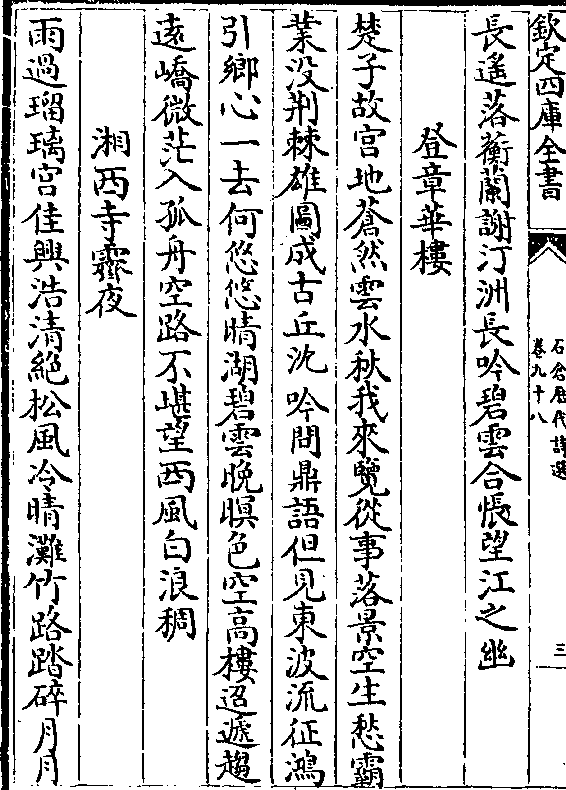 欽定四庫全書
石倉歷代詩選
卷九十八
三
長遙落蘅蘭謝汀洲長吟碧雲合悵望江之幽
登章華樓
楚子故宮地蒼然雲水秋我來覽從事落景空生愁霸
業没荆棘雄圖成古丘沈吟問鼎語但見東波流征鴻
引鄉心一去何悠悠晴湖碧雲晚暝色空高樓迢遞趨
遠嶠微茫入孤舟空路不堪望西風白浪稠
湘西寺霽夜
雨過瑠璃宮佳興浩清絕松風冷晴灘竹路踏碎月月